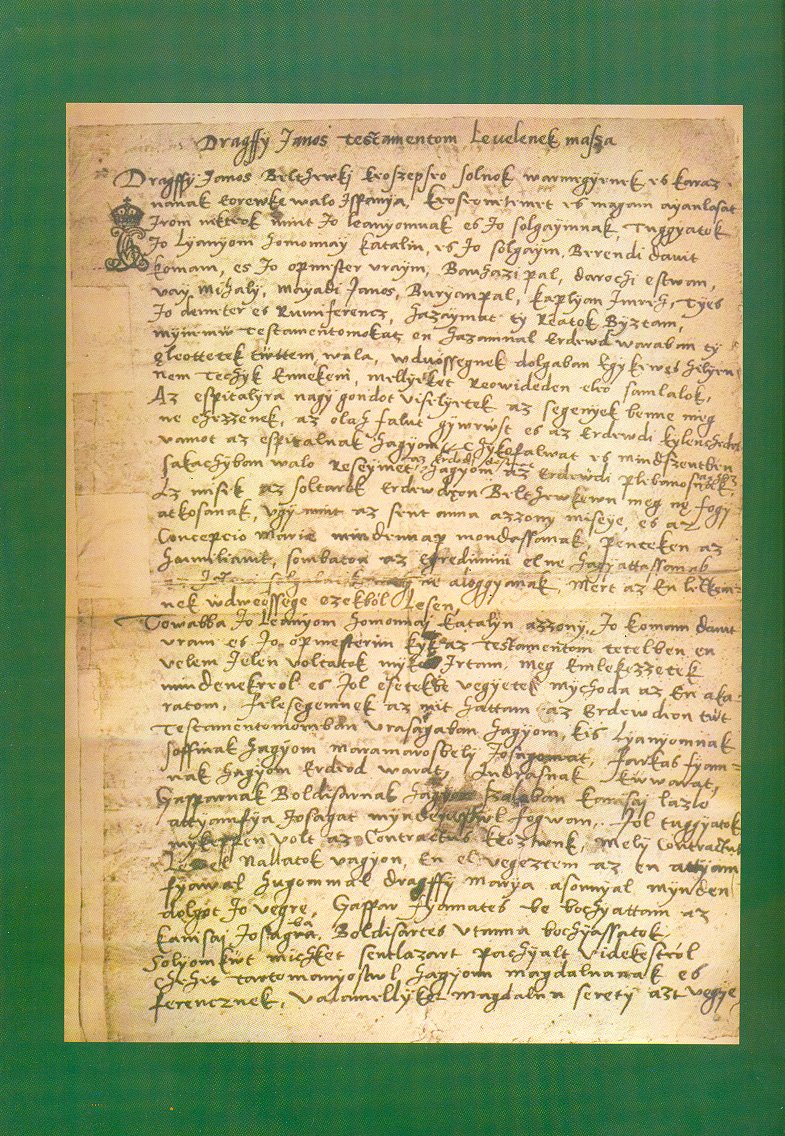 Dragffy Janos testamentom Levelenek massa
Dragffy Janos Belthewkj keoszepseo solnok warmegyenek es karaz
nanak eorewke walo Ispanya, keoseonetemet es magam ayanlasat
Irom nekteok mint Jo leanyomnak es Jo solgaymnak, Tuggyatok
Jo Lyanyom homonnay katalin, es Jo solgaym, Berendi dauit
komam, es Jo opmister vraym, Banhazi pal, darochi estwan,
vay mihaly, mayadi Janos, Buryan pal, kaplyan Imreh, Tyes
Jo demiter es Rumi ferencz, hazaymat ty Reatok Byztam,
testamentomokat en hazamnal Erdewd waraban ty
eleottetek twttem wala, wduosségnek dolgaban
nem Techyk Ennekem, mellyeket Reowideden eleo samlalok,
Az espitalyra nagy gondot viselyetek az segenyek benne meg
ne ehezzenek, az olah falut gywrwst es az Erdewdi kylenchedet
vamot az espitalnak hagyom chykofalwat es mindszentben
sakachyban walo Reseymet hagyom az Erdewdi plebanosnak,
Ez misek az soltarok Erdewdeon Belthewkewn meg ne fogy
atkosanak, vgy mint az sent anna azzony miseye, es az
Concepcio Marie mindennap mondassanak, penteken az
Humiliauit, sombaton az Egredimini el ne hagyattassanak
ne aloggyanak, Mert az En lelkem
nek wdweossege ezekből Lesen,
Towabba Jo Leanyom homonnay katalyn azzony, Jo komam dauit
vram es Jo opmesterim kyk az testamentom tetelben en
velem Jelen voltatok myko Irtam, meg Emlekezzetek
mindenekreol es Jol esetekbe vegyetek mychoda az En aka
ratom, felesegemnek az mit hattam az Erdewdeon twt
Testamentomomban vrasagaban hagyom, kis Lyanyomnak
soffinak hagyom maramarosbely Josagomat, farkas fyam
nak hagyom Erdeod warat, Andrasnak kwwarat,
Gasparnak Boldisarnak hagyom kanisaj lazlo
attyamfya Josagat fogwan, Jol tuggyatok
mykeppen volt az Contractus keoztwnk, Mely contractus
Level Nallatok vagyon, En el vegeztem az en attyam
fyawal hugommal dragffy marya asonyal mynden
dolgot Jo vegre, Gaspar fyamates be bochyattam az
kanisaj Josagba, Boldisartes vtanna bochyassatok
Solyomkwt michket sentlazart pachyalt videkestről
Chehit tartomanyostwl hagyom magdalnanak es
ferencznek, valamellyket Magdalna serety azt vegye